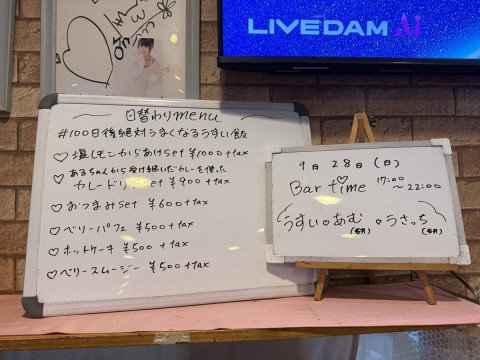 LIVEDAM Ai
日替わりmenu
#100日後絶対うまくなるうすい飯
♡ 塩レモンからあげset ¥1000+tax
♡ あるちゃんから受け継いだカレーを使った
カレードリアset ¥900+tax
♡ おつまみset ¥600+tax
♡ ベリーパフェ ¥500+tax
♡ ホットケーキ ¥500+tax
♡ ベリースムージー ¥500+tax
9月28日(日)
Bar time 17:00
~22:00
うすい♡あむ ♡うさっち